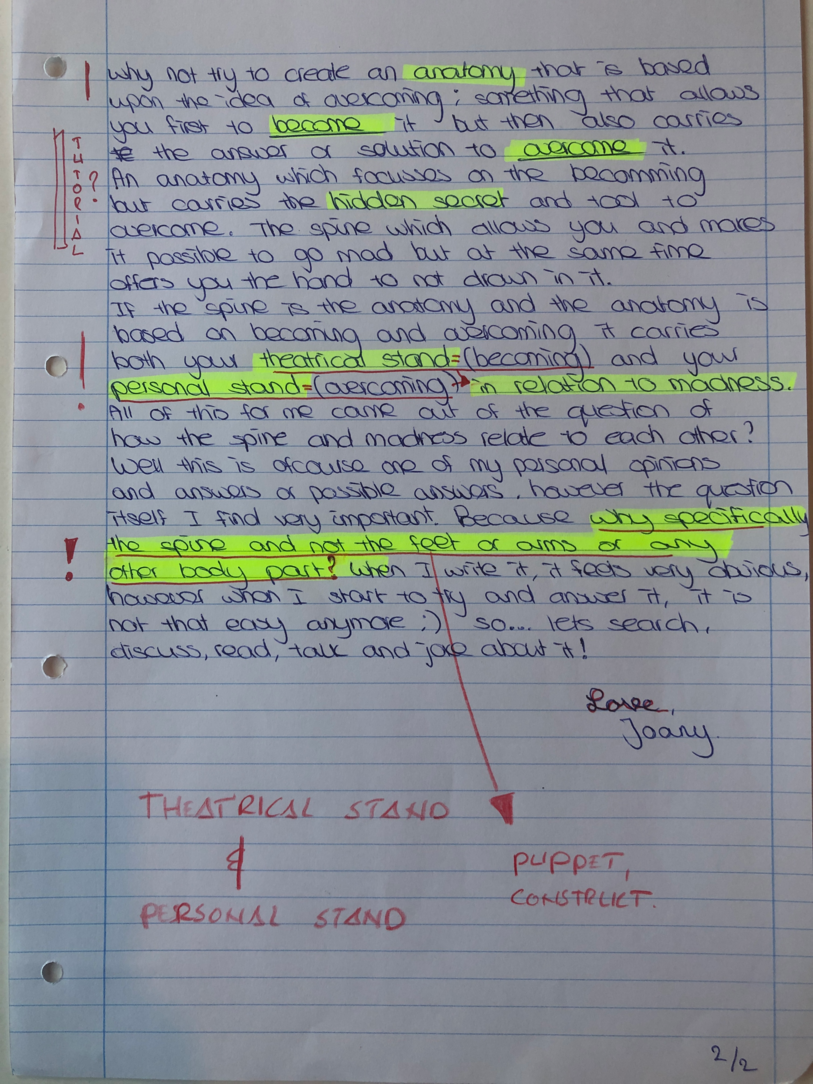 why not try to create an anatomy that is based
upon the idea of overcoming; something that allows
you first to become it but then also carries
te the answer or solution to overcome it.
An anatomy which focusses on the becomming
but carries the hidden secret and tool to
overcome. The spine which allows you and makes
it possible to go mad but at the same time
offers you the hand to not drown in it.
If the spine is the anatomy and the anatomy is
based on becoming and overcoming it carries
both your theatrical stand=(becoming) and your
personal stand=(overcoming) in relation to madness.
All of this for me came out of the question of
how the spine and madness relate to each other?
Well this is ofcourse one of my personal opinions
and answers or possible answers, however the question
itself I find very important. Because why specifically
the spine and not the feet or arms or any
other body part? When I write it, it feels very obvious,
however when I start to try and answer it, it is
not that easy anymore ;) so... lets search,
discuss, read, talk and joke about it!
Love,
Joany.
!
TUTORIAL
?
!
!
THEATRICAL STAND
&
PERSONAL STAND
PUPPET,
CONSTRUCT.
2/2